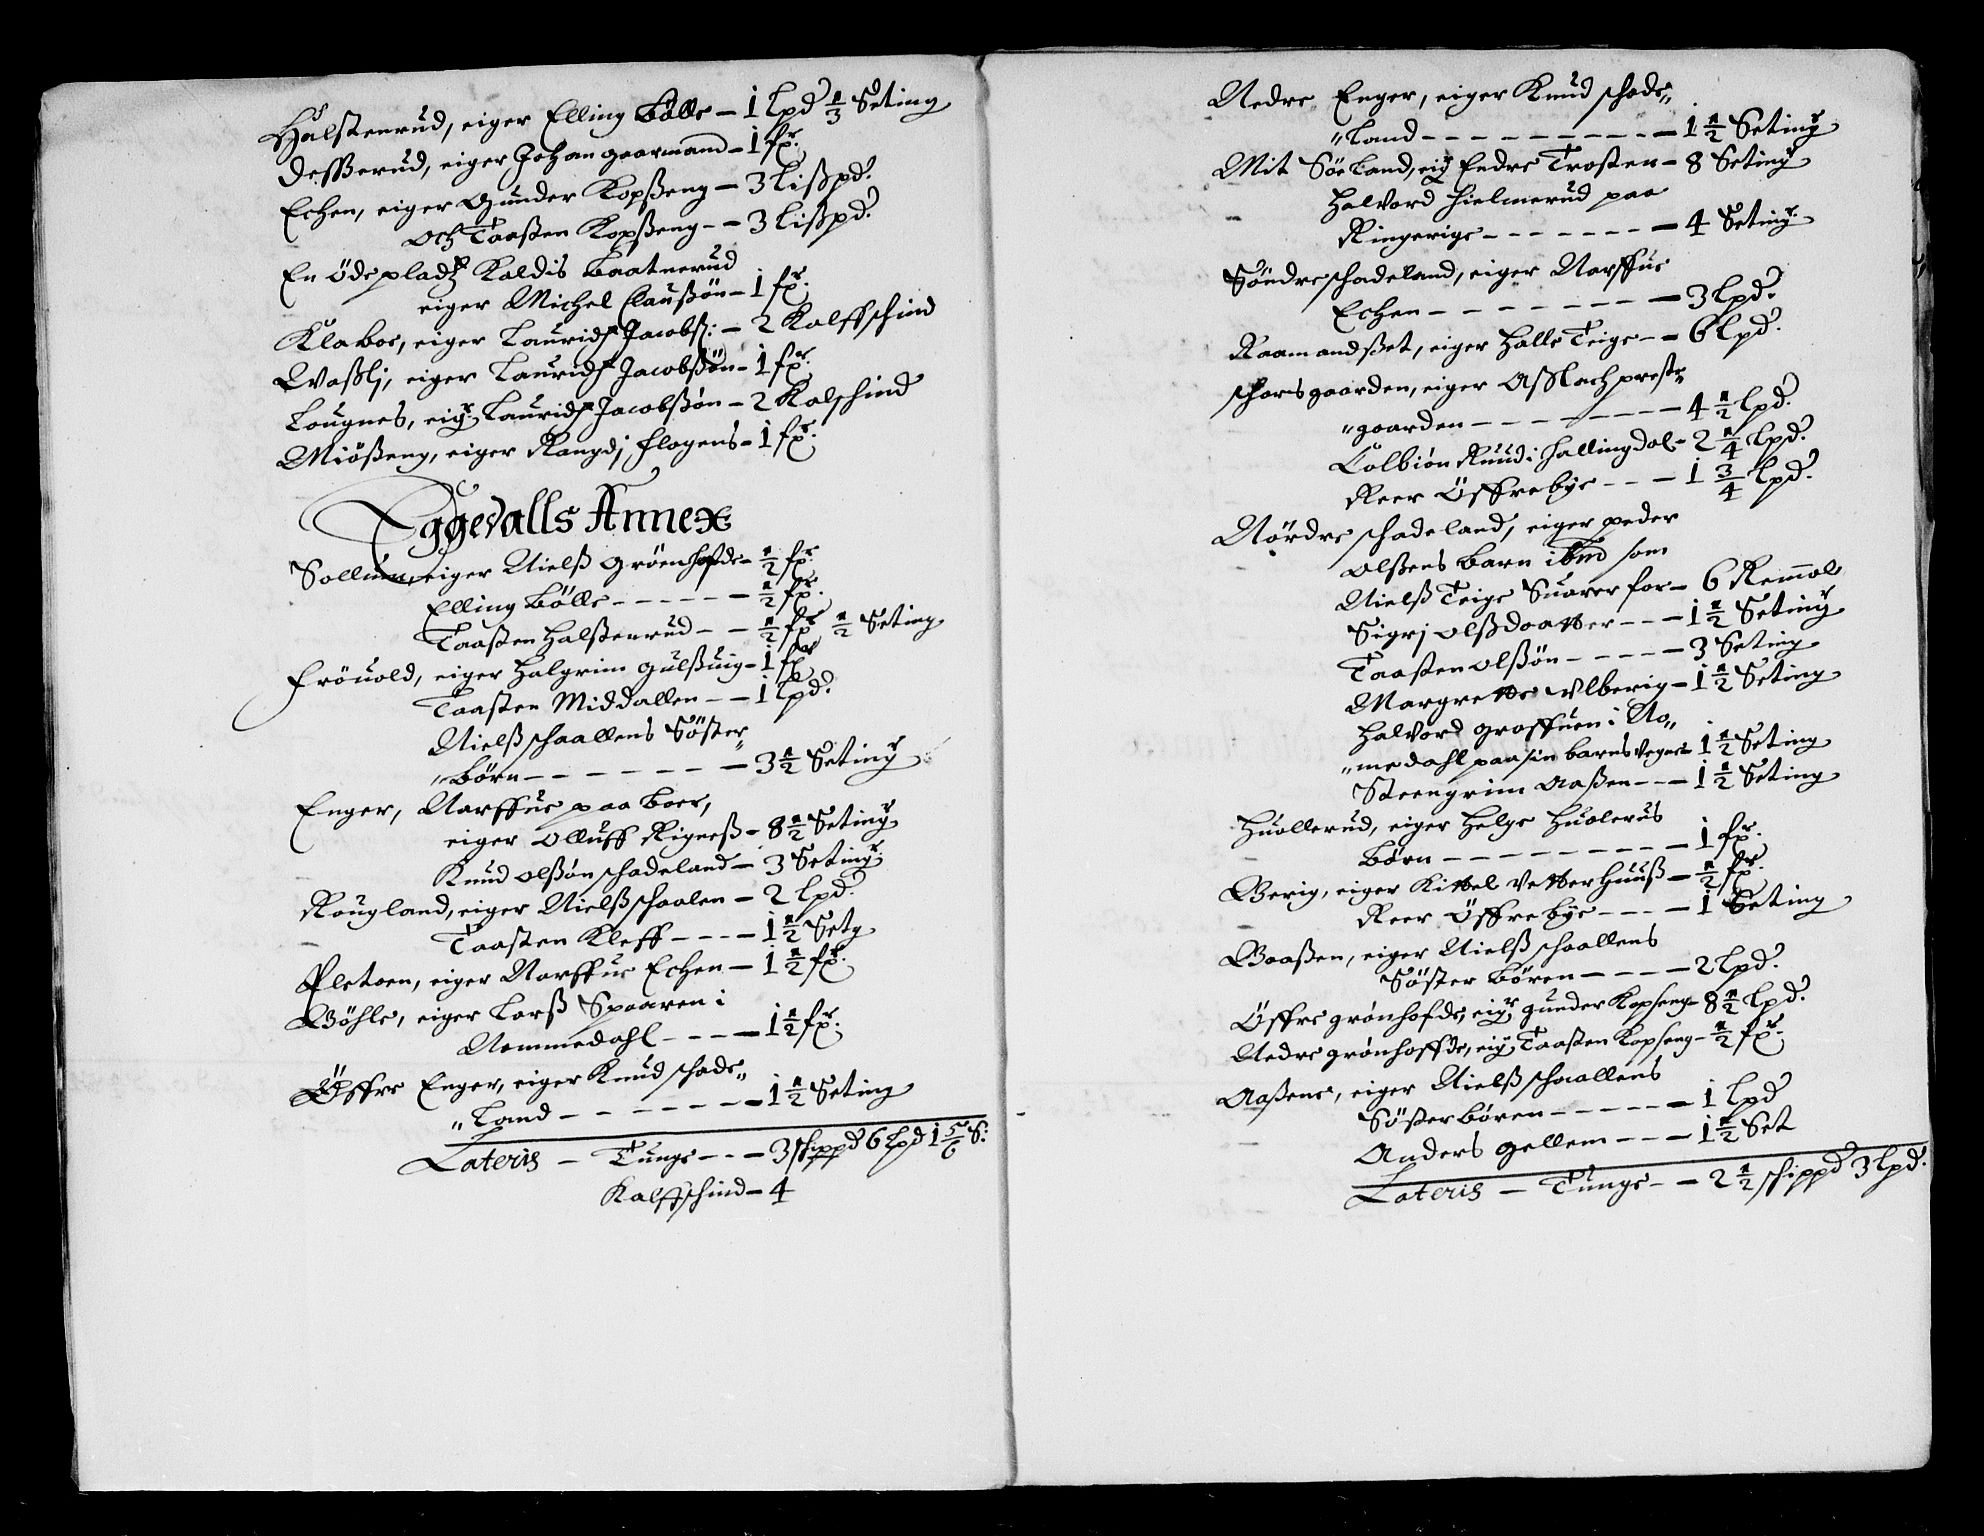 Halstenrud, eiger Elling Bölle – 1 lpd 1/3 Seting
Desserud, eiger Johan gaarmand – 1 fr:
Echen, eiger Gunder Kopsseng – 3 lisspd:
och Taasten Kopsseng – – 3 lisspd:
En öde pladtz Kaldis Baatnerud
eiger Michel Claussön – 1 fr:
Klaboe, eiger Lauridtz Jacobss: – 2 Kalffschind
Waslj, eiger Lauridtz Jacobssön – 1 fr:
Lougnes, eigr: Lauridtz Jacobssön – 2 Kalschind
Miösseng, eiger Rangdj flogens – 1 fr:
Eggevalls Annex
Sollum, eiger Nielss Grönhofde – 1/2 fr:
Elling Bölle – – – – – – 1/2 fr:
Taasten Halstenrud – – 1/2 fr 1/2 Seting
Fröuold, eiger Halgrim gulssuig – 1 fr
Taasten Middallen – – 1 lpd:
Nielss schaallens Söster„
„börn – – – – – – – 3 1/2 Setingr
Enger, Narffue paa boer,
eiger Olluff Rigness – 8 1/2 Setingr
Knud olssön schadeland – 3 Setingr:
Rougland, eiger Nielss schaalen – 2 lpd:
Taasten Kleff – – – – 1 1/2 Setg
Fletoen, eiger Narffue Echen – 1 1/2 fr:
Böhle, eiger Larss Spaaren i
Nommedahl – – – – 1 1/2 fr:
Öffre Enger, eiger Knud schade„
„land – – – – – – – 1 1/2 Seting
Lateris – Tunge – – – 3 schippd 6 lpd 1 5/6 S:
Kalffschind – 4
Nedre Enger, eiger Knud schade„
„land – – – – – – – – – – 1 1/2 Setingr
Mit Söeland, eigr Endre Trosten – 8 Setingr
Halvord Hielmerud paa
Ringerige – – – – – – – – 4 Setingr:
Söndre schadeland, eiger Narffue
Echen – – – – – – – – 3 lpd:
Raamandsset, eiger Halle Teige – – 6 lpd:
schorsgaarden, eiger Asslach preste„
„gaarden – – – – – – – – 4 1/2 lpd:
Colbiön Ruud i Hallingdal – 2 1/4 lpd:
Reer Öffrebye – – – 1 3/4 lpd:
Nördre schadeland, eiger peder
olssens barn ibmd som
Nielss Teige Suarer for – 6 Remmol
Sigrj olssdaatter – – – 1 1/2 Setingr
Taasten olssön – – – – – 3 Seting
Margrette Vlberig – 1 1/2 Seting
Halvord graffuen i No„
„medahl paa sin barns vegene 1 1/2 Seting
Steengrim Aassen – – – 1 1/2 Seting
Huollerud, eiger Helge Huolerus
börn – – – – – – – – – 1 fr:
Berig, eiger Kittel Vetterhuuss – 1/2 fr:
Reer Öffrebye – – – – 1 Seting
Baassen, eiger Nielss schaallens
Söster börren – – – – 2 lpd:
Öffre grönhofde, eigr: gunder Kopseng – 8 1/2 lpd:
Nedre grönhoffde, eigr Taasten Kopseng – 1/2 fr:
Aassene, eiger Nielss schaallens
Söster börren – – – – – 1 lpd
Anders gellem – – – 1 1/2 Set
Lateris – Tunge – – 2 1/2 schippd 3 lpd: